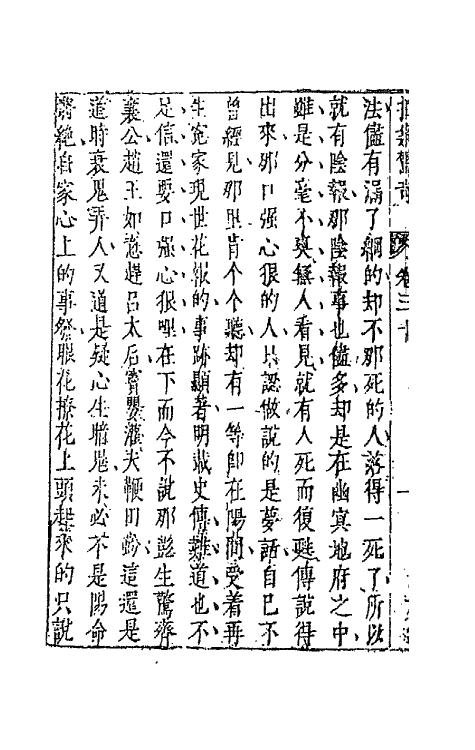 拍案驚奇 卷三十 一
法儘有漏了網的却不那死的人落得一死了所以
就有陰報那陰報事也儘多却是在幽冥地府之中
雖是分毫不爽無人看見就有人死而復甦傳說得
出來那口强心狠的人只認做說的是夢話自己不
曾經見那里肯个个聽却有一等即在陽間受着再
生冤家現世花報的事跡顯著明載史傳難道也不
足信還要口强心狠哩在下而今不說那彭生驚齊
襄公趙王如意趕呂太后竇嬰灌夫鞭田蚡這還是
道時衰鬼弄人又道是疑心生暗鬼未必不是陽命
將絕自家心上的事發眼花撩花上頭起來的只說